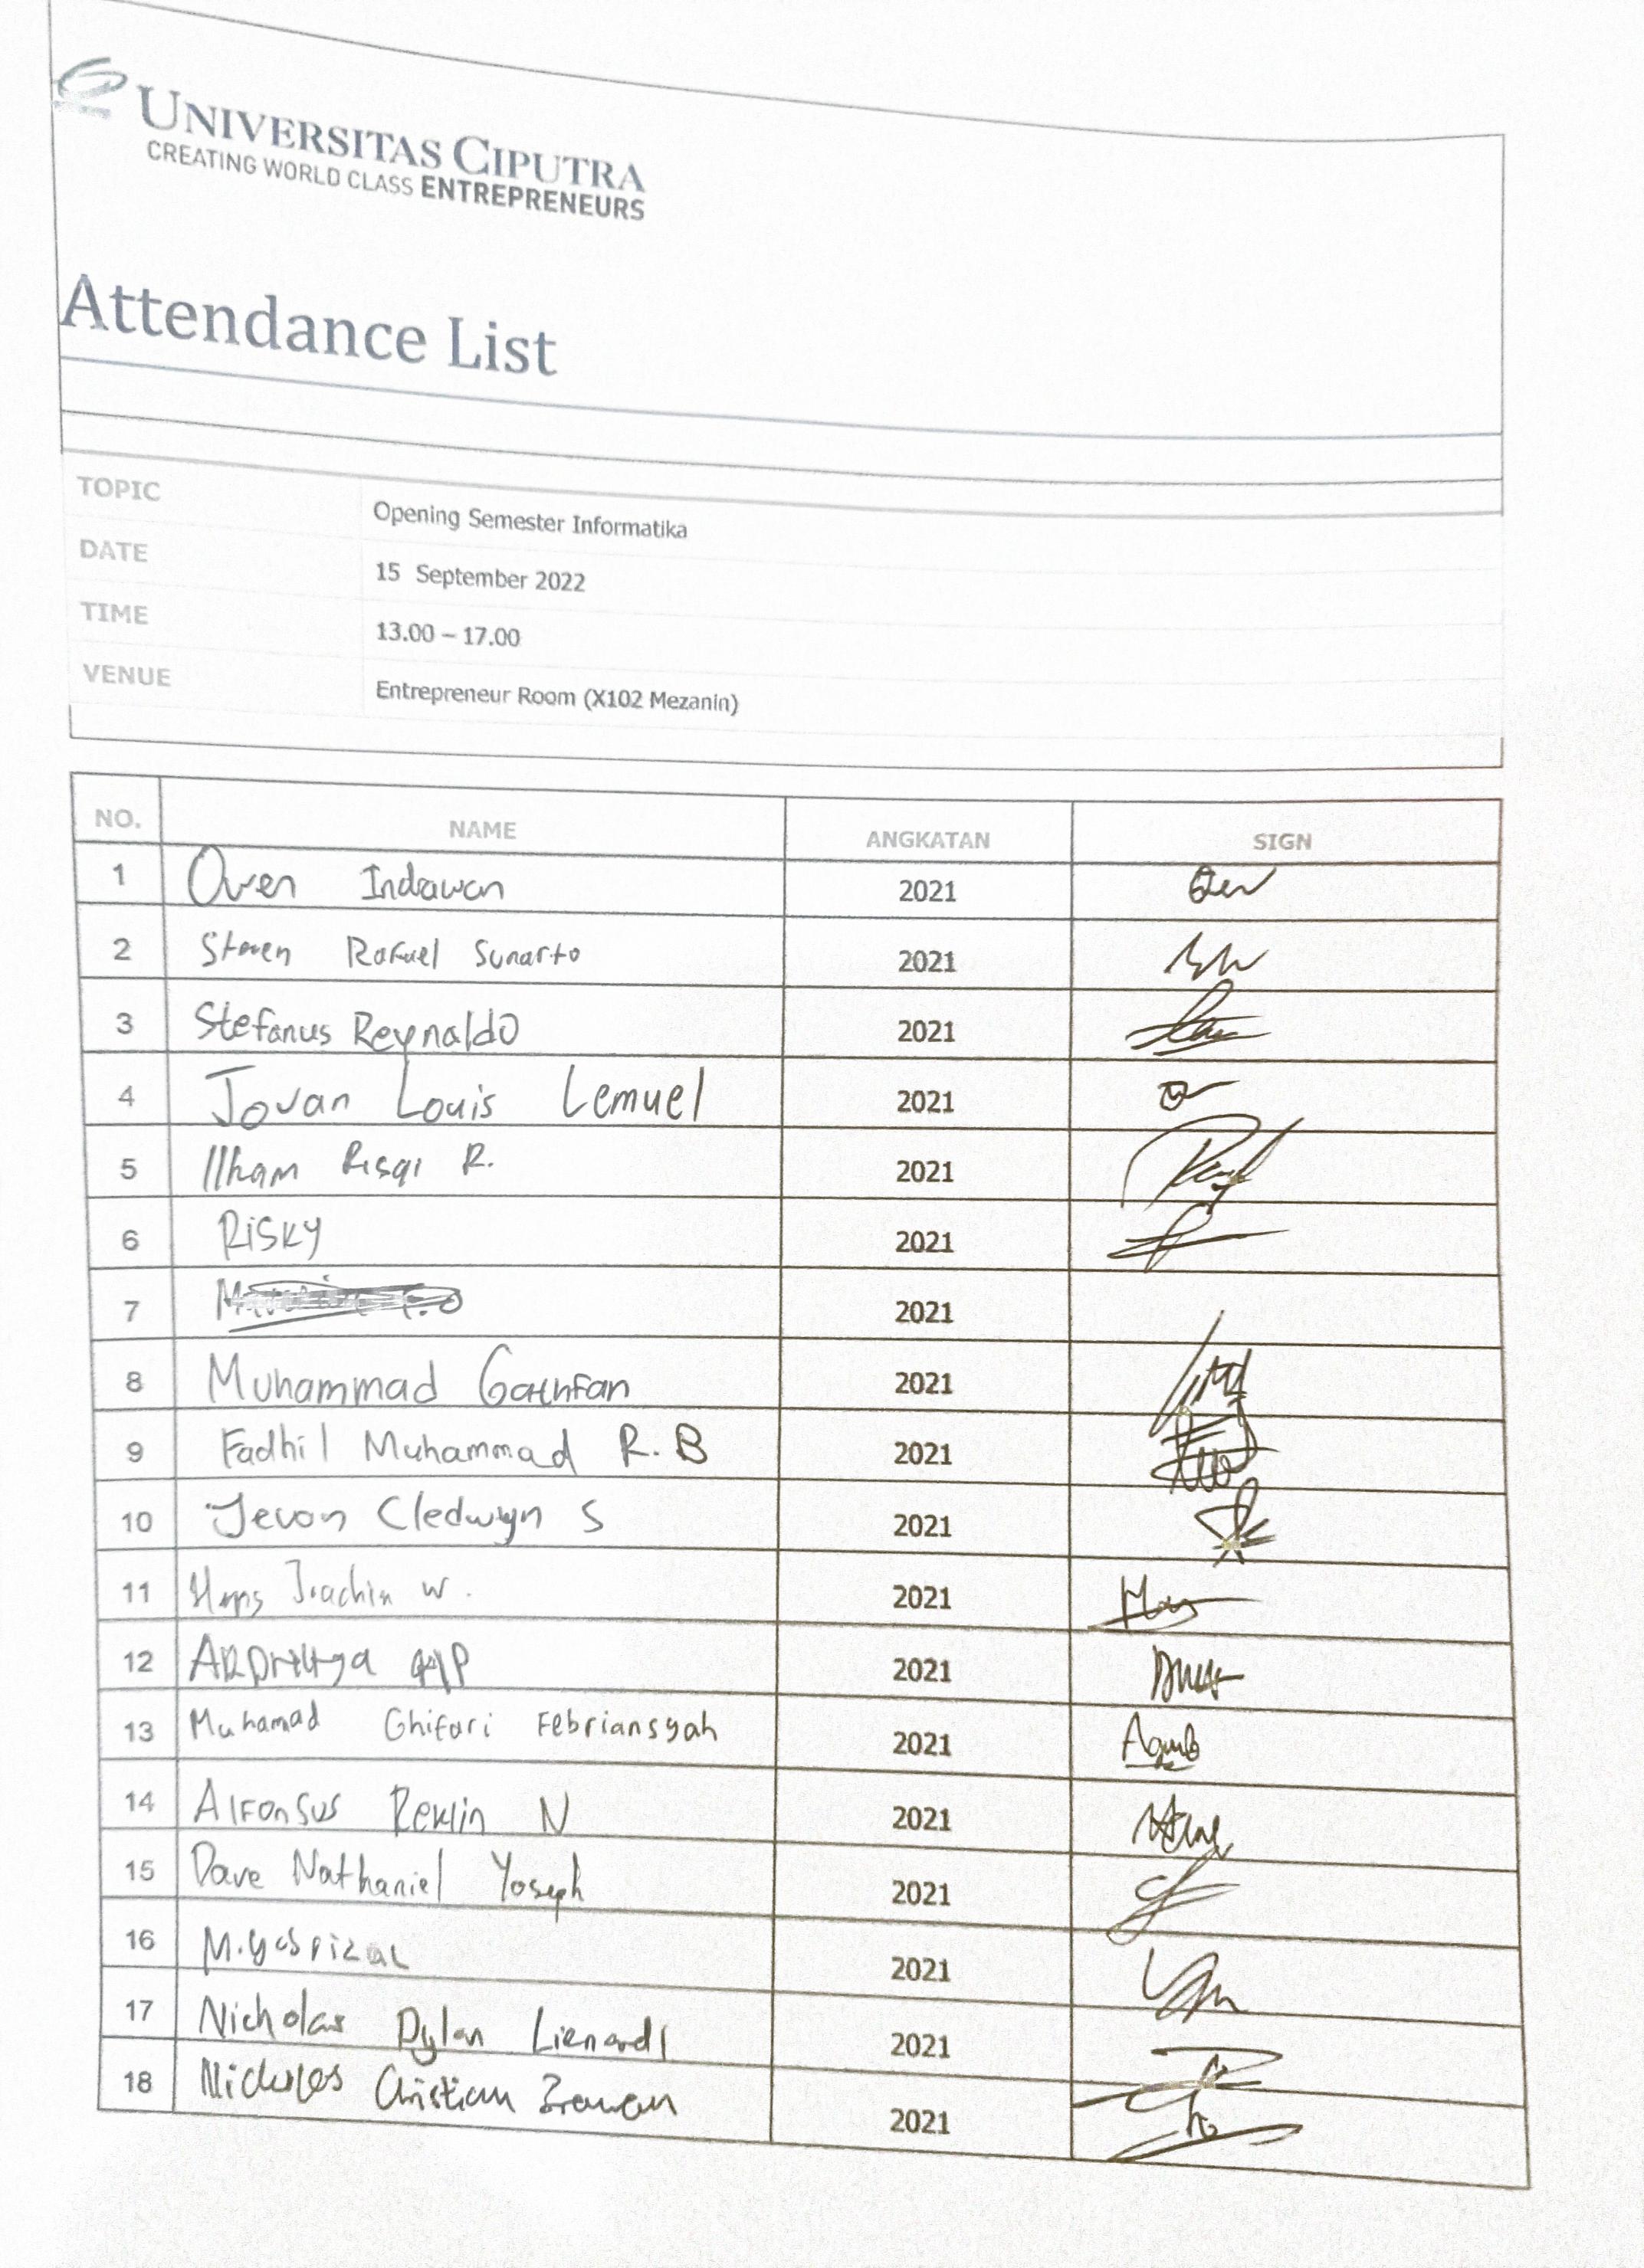 UNIVERSITAS CIPUTRA
CREATING WORLD CLASS ENTREPRENEURS
Attendance List
TOPIC Opening Semester Informatika
DATE 15 September 2022
TIME 13.00 – 17.00
VENUE Entrepreneur Room (X102 Mezanin)
NO. NAME ANGKATAN SIGN
1 Owen Indawan 2021
2 Steven Rafael Sunarto 2021
3 Stefanus Reynaldo 2021
4 Jovan Louis Lemuel 2021
5 Ilham Risqi R. 2021
6 RiSKY 2021
7 2021
8 Muhammad 2021
9 Fadhil Muhammad R.B 2021
10 Jevon Cledwyn S 2021
11 Hans Joachim W. 2021
12 2021
13 Muhamad Ghifari Febriansyah 2021
14 Alfonsus Reklin N 2021
15 Dave Nathaniel Yoseph 2021
16 2021
17 Nicholas Dylan Lienardi 2021
18 Christian 2021